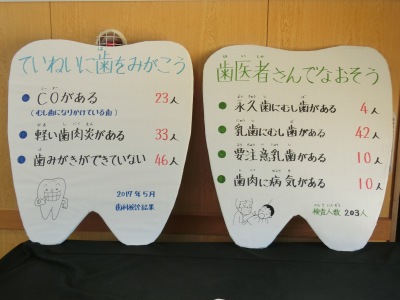 ていねいに歯をみがこう
COがある 23人
(むし歯になりかけている歯)
軽い歯肉炎がある 33人
歯みがきができていない 46人
2017年5月
歯科検診結果
歯医者さんでなおそう
永久歯にむし歯がある 4人
乳歯にむし歯がある 42人
要注意乳歯がある 10人
歯肉に病気がある 10人
検査人数 203人